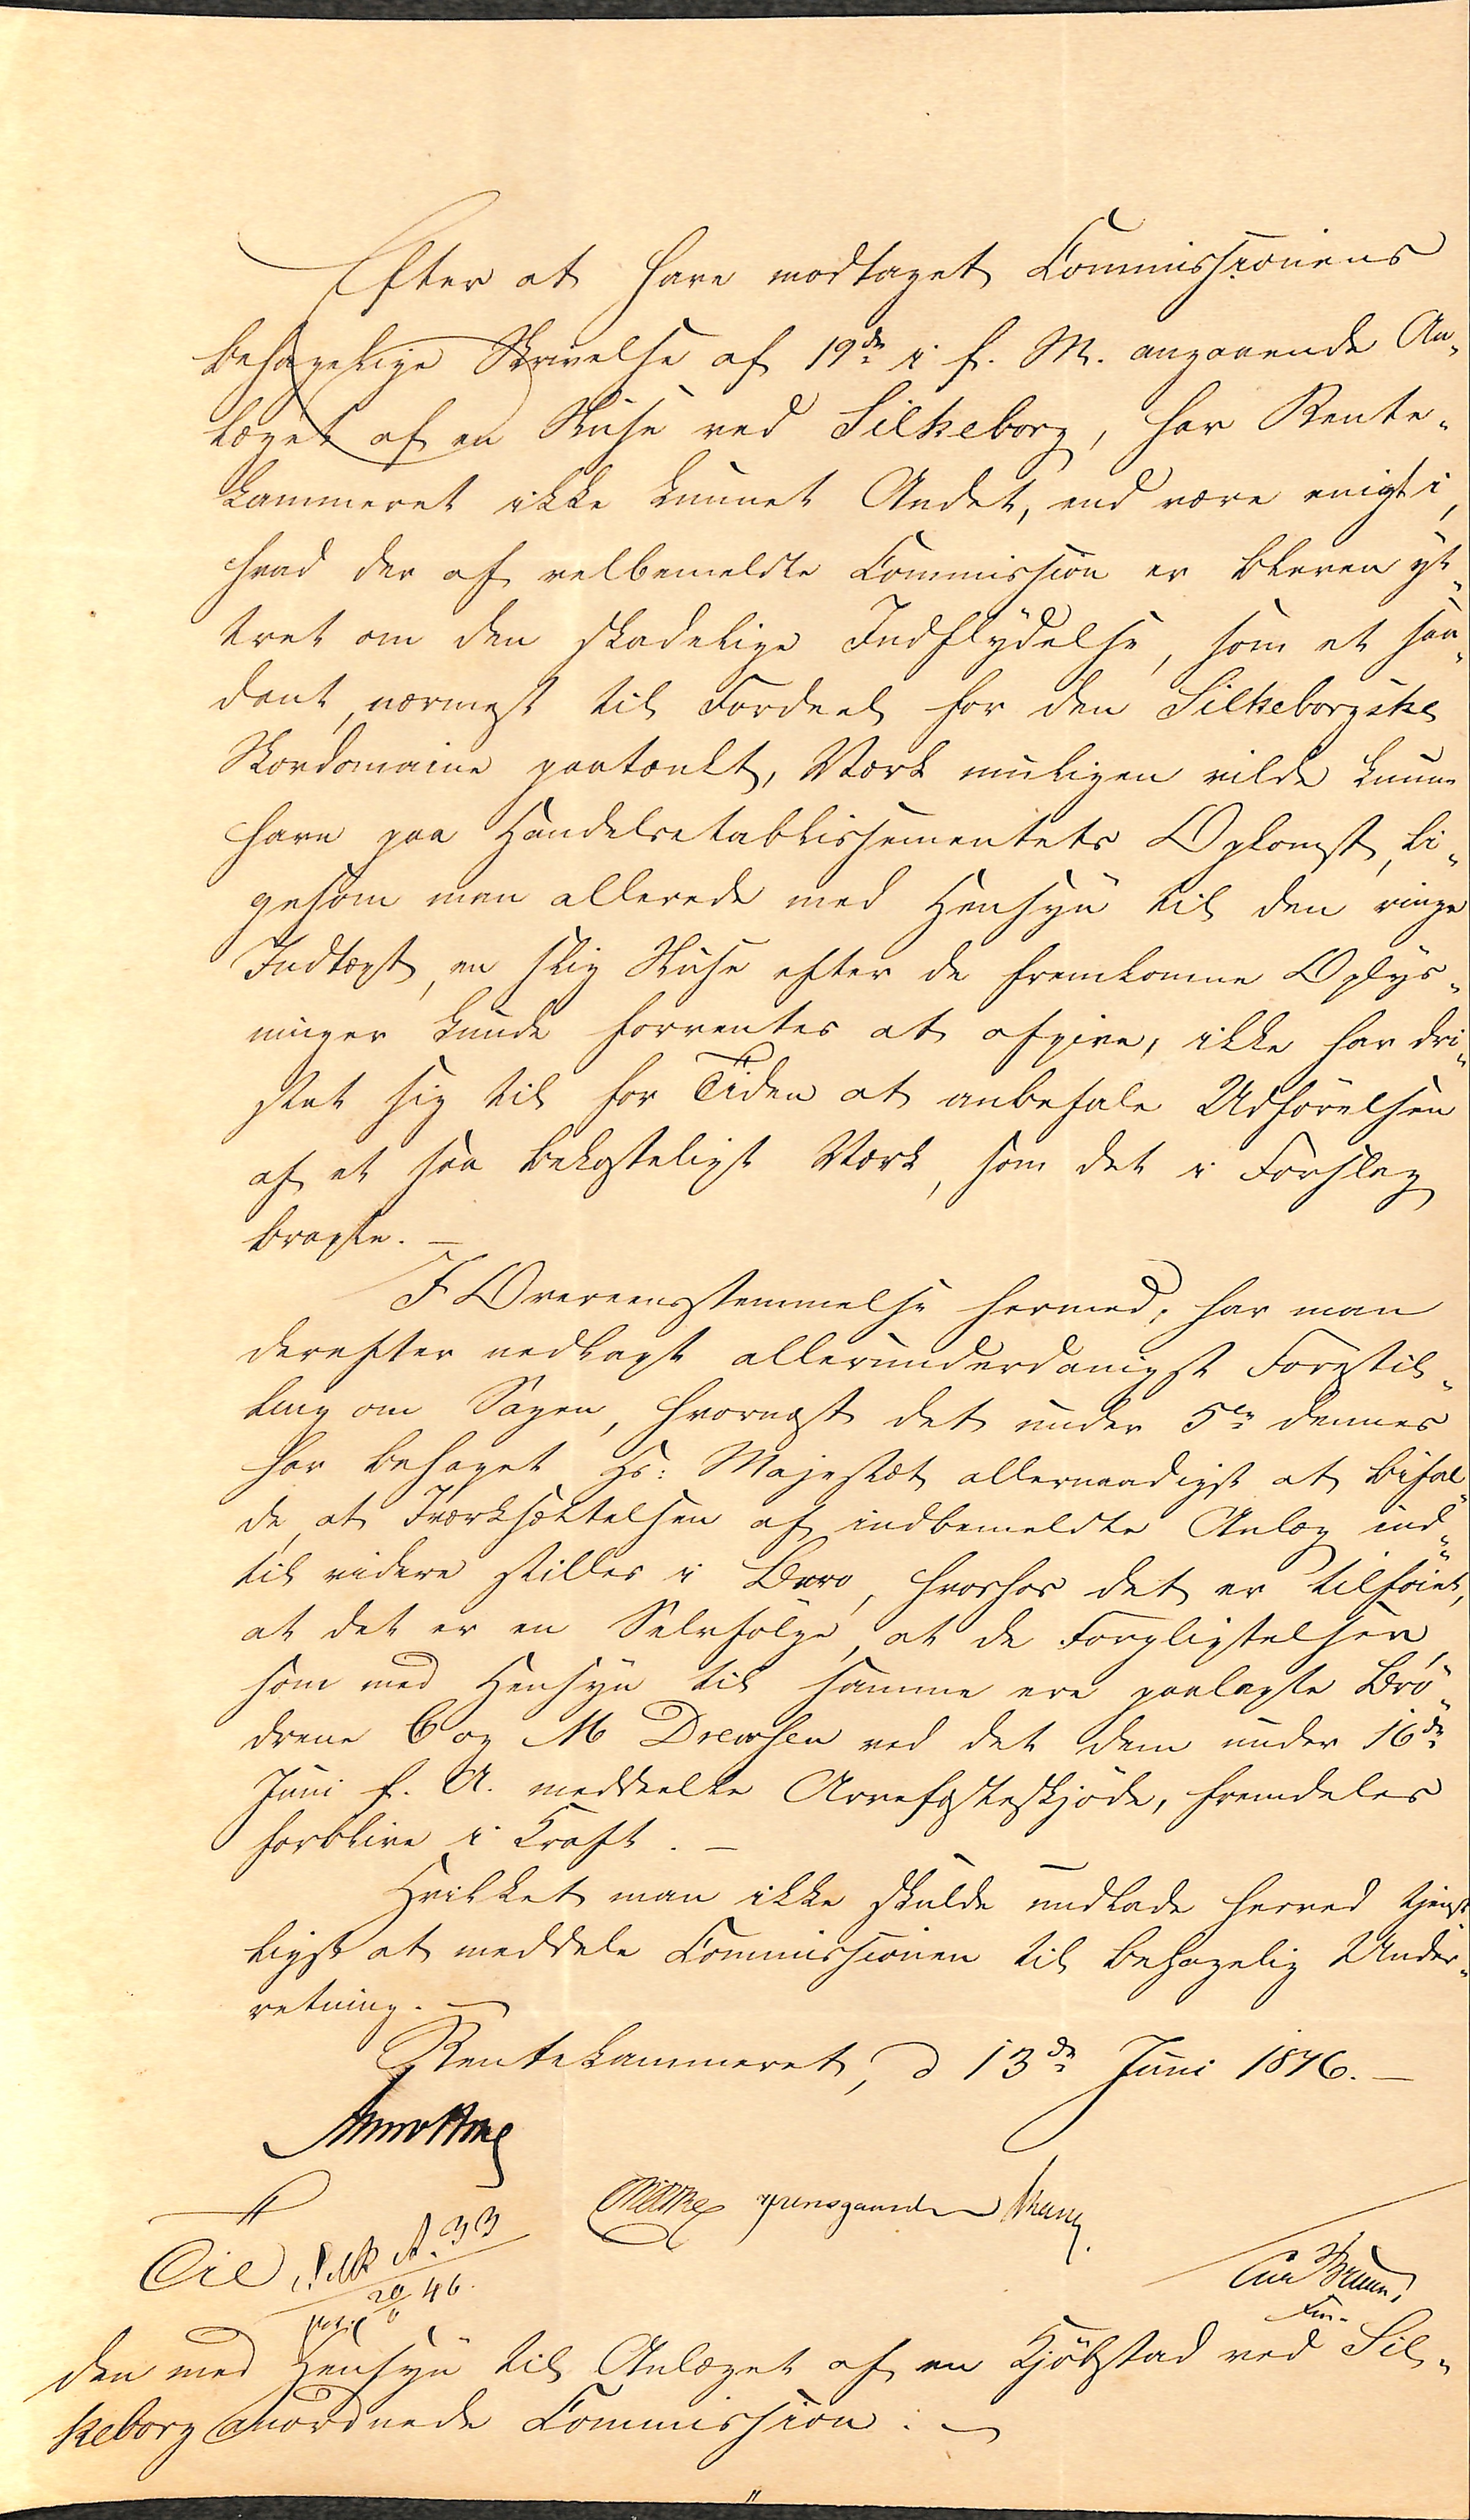 Efter at have modtaget Commissionens
behagelige Skrivelse af 19de i f. M. angaaende An-
læget af en Sluse ved Silkeborg, har Rente-
kammeret ikke kunnet Andet, end være enigt i,
hvad der af velbemeldte Commission er bleven yt-
tret om den skadelige Indflydelse, som et saa-
dant, nærmest til Fordeel for den Silkeborgske
Skovdomaine paatænkt, Værk muligen vilde kunne
have paa Handelsetablissementets Opkomst, li-
gesom man allerede med Hensyn til den ringe
Indtægt, en slig Sluse efter de fremkomne Oplys-
ninger kunde forventes at afgive, ikke har dri-
stet sig til for Tiden at anbefale Udførelsen
af et saa bekosteligt Værk, som det i Forslag
bragte. —
I Overeensstemmelse hermed, har man
derefter nedlagt allerunderdanigst Forestil-
ling om Sagen, hvornæst det under 5te dennes
har behaget Hs: Majestæt allernaadigst at bifal-
de, at Iværksættelsen af indbemeldte Anlæg ind-
til videre stilles i Bero, hvorhos det er tilføiet,
at det er en Selvfølge, at de Forpligtelser,
som med Hensyn til samme ere paalagte Brø-
drene C og M Drewsen ved det dem under 16de
Juni f. A. meddeelte Arvefæsteskjøde, fremdeles
forblive i Kraft. —
Hvilket man ikke skulde undlade herved tjenst-
ligst at meddele Commissionen til behagelig Under-
retning. —
Rentekammeret, d 13de Juni 1846. —
Til
A. 33
20/6 46.
den med Hensyn til Anlæget af en Kjøbstad ved Sil-
keborg anordnede Commission. —